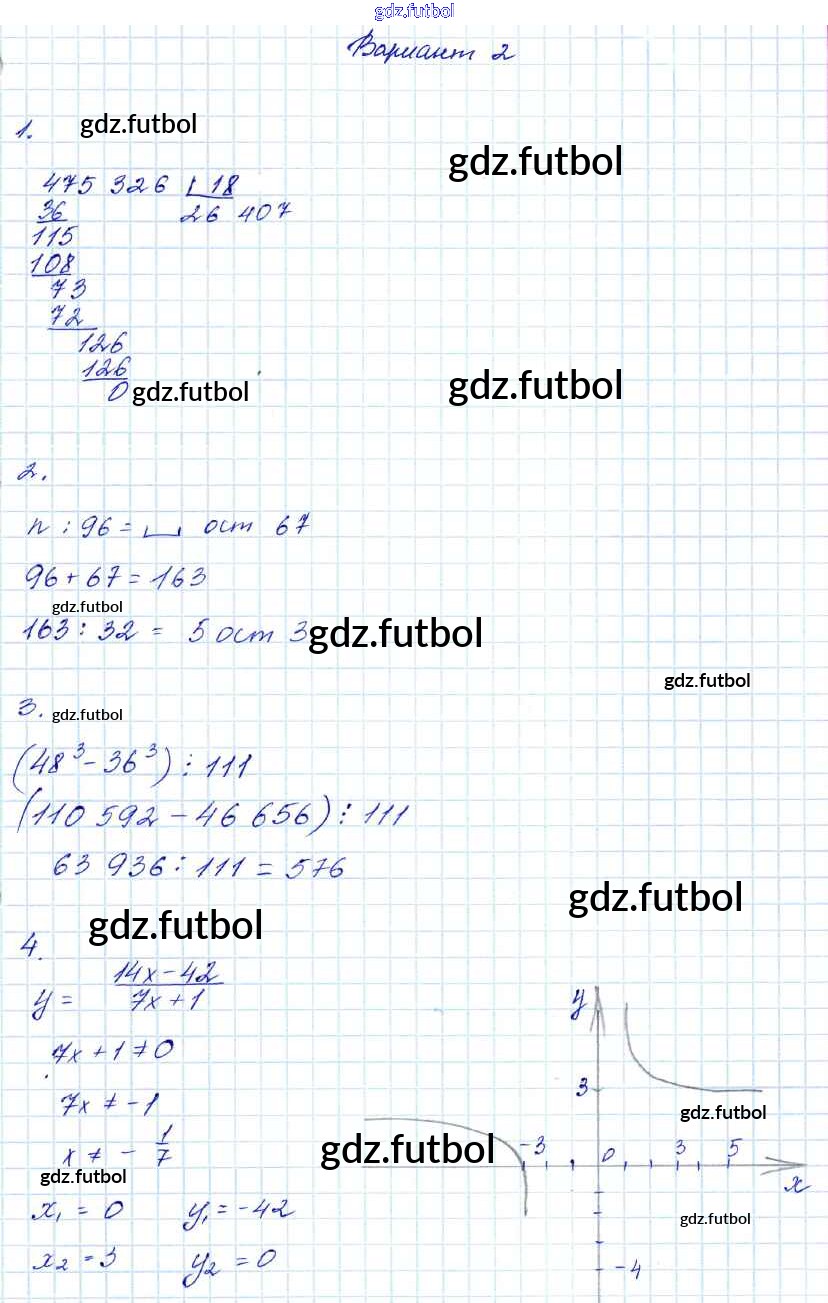 gdz.futbol
Вариант 2
1. gdz.futbol
gdz.futbol
475 326 18
36 26 407
115
108
73
72
126
126
0 gdz.futbol
gdz.futbol
2.
n : 96 = ост 67
96 + 67 = 163
gdz.futbol
163 : 32 = 5 ост 3
gdz.futbol
gdz.futbol
3. gdz.futbol
(48³ - 36³) : 111
(110 592 - 46 656) : 111
63 936 : 111 = 576
gdz.futbol
gdz.futbol
4.
y = (14x - 42)/(7x + 1)
7x + 1 ≠ 0
7x ≠ -1
x ≠ - 1/7
gdz.futbol
gdz.futbol
x₁ = 0 y₁ = -42
x₂ = 3 y₂ = 0
y
3
gdz.futbol
-3 0 3 5
x
gdz.futbol
-4